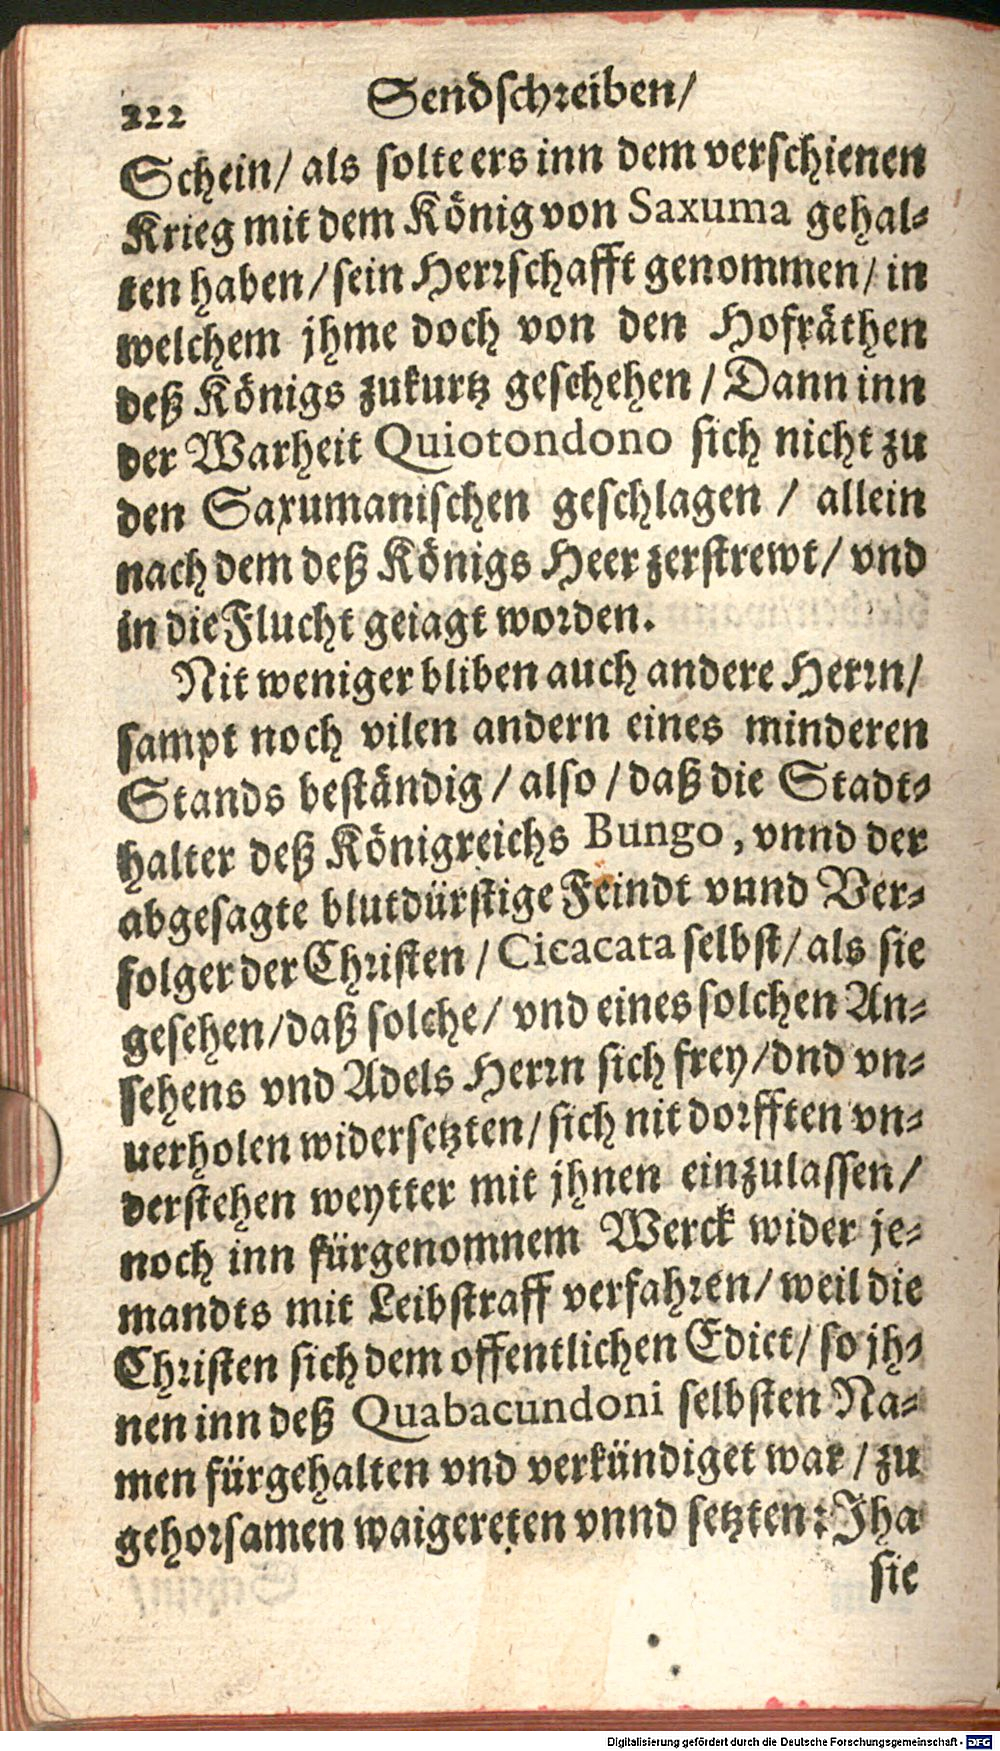 222
Sendschreiben/
Schein/ als solte ers inn dem verschienen
Krieg mit dem König von Saxuma gehal-
ten haben/ sein Herrschafft genommen/ in
welchem jhme doch von den Hofräthen
deß Königs zukurtz geschehen/ Dann inn
der Warheit Quiotondono sich nicht zu
den Saxumanischen geschlagen/ allein
nach dem deß Königs Heer zerstrewt/ vnd
in die Flucht geiagt worden.
Nit weniger bliben auch andere Herrn/
sampt noch vilen andern eines minderen
Stands beständig/ also/ daß die Stadt-
halter deß Königreichs Bungo, vnnd der
abgesagte blutdürstige Feindt vnnd Ver-
folger der Christen/ Cicacata selbst/ als sie
gesehen/ daß solche/ vnd eines solchen An-
sehens vnd Adels Herrn sich frey/ dnd vn-
uerholen widersetzten/ sich nit dorfften vn-
derstehen weytter mit jhnen einzulassen/
noch inn fürgenomnem Werck wider je-
mandts mit Leibstraff verfahren/ weil die
Christen sich dem offentlichen Edict/ so jh-
nen inn deß Quabacundoni selbsten Na-
men fürgehalten vnd verkündiget war/ zu
gehorsamen waigereten vnnd setzten: Jha
sie
Digitalisierung gefördert durch die Deutsche Forschungsgemeinschaft - DFG